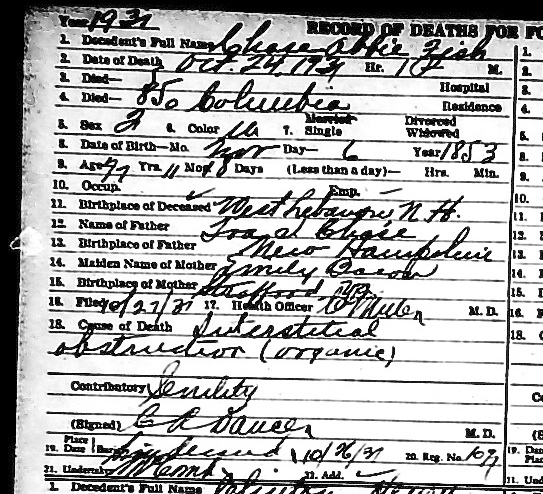 Year 1931 RECORD OF DEATHS FOR
1. Decedent's Full Name Chase Abbie Fish
2. Date of Death Oct. 24, 1931 Hr. M.
3. Died— Hospital
4. Died— 850 Columbia Residence
5. Sex F 6. Color W 7. Married Single Divorced Widowed
8. Date of Birth—Mo. Nov Day— 6 Year 1853
9. Age 77 Yrs. 11 Mos 18 Days (Less than a day)— Hrs. Min.
10. Occup. Emp. —
11. Birthplace of Deceased West Lebanon N.H.
12. Name of Father Chase
13. Birthplace of Father New Hampshire
14. Maiden Name of Mother Emily Bacon
15. Birthplace of Mother Strafford
16. Filed 10/27/31 17. Health Officer M. D.
18. Cause of Death Interstitial
obstruction (organic)
Contributory Senility
(Signed) M. D.
19. Place Date Burial 10/26/31 20. Reg. No.
21. Undertaker 22. Add.
1. Decedent's Full Name